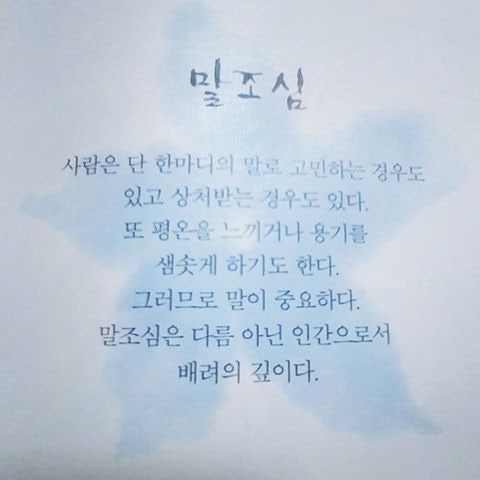 말조심
사람은 단 한마디의 말로 고민하는 경우도
있고 상처받는 경우도 있다.
또 평온을 느끼거나 용기를
샘솟게 하기도 한다.
그러므로 말이 중요하다.
말조심은 다름 아닌 인간으로서
배려의 깊이다.